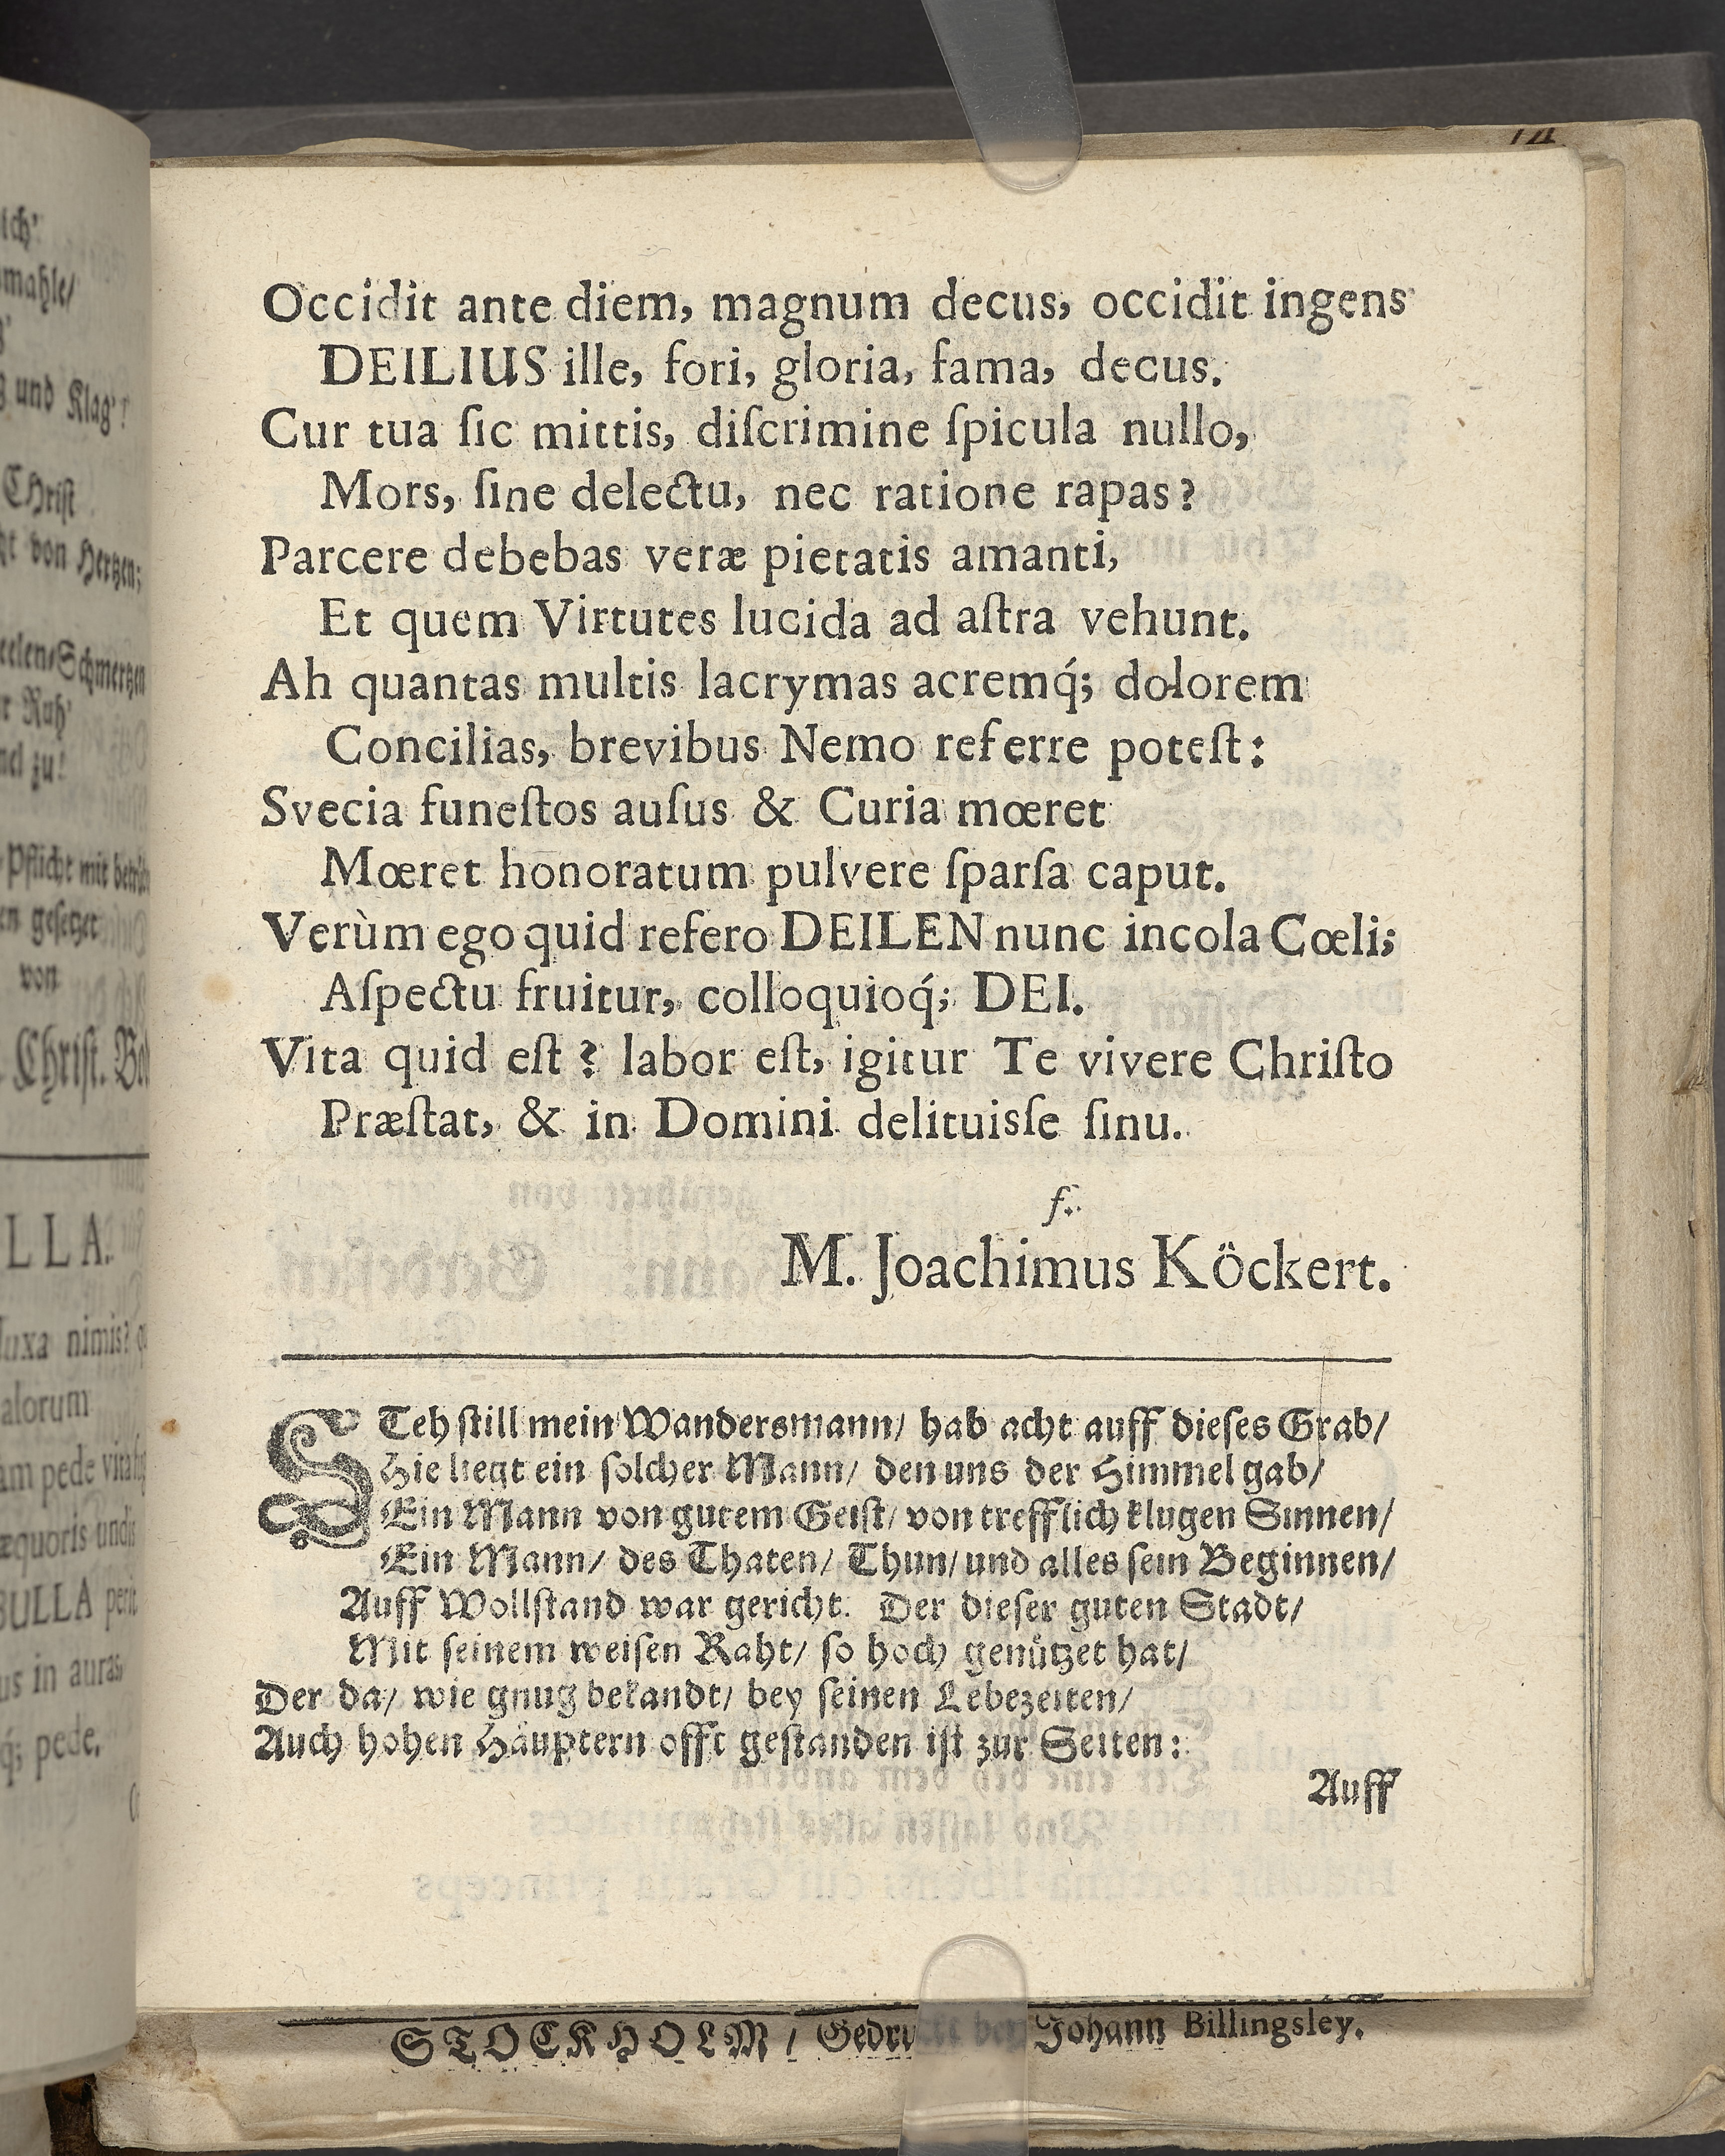 Occidit ante diem, magnum decus, occidit ingens
DEILIUS ille, fori, gloria, fama, decus.
Cur tua ſic mittis, diſcrimine ſpicula nullo,
Mors, ſine delectu, nec ratione rapas?
Parcere debebas veræ pietatis amanti,
Et quem Virtutes lucida ad aſtra vehunt.
Ah quantas multis lacrymas acremq́; dolorem
Concilias, brevibus Nemo referre poteſt:
Svecia funeſtos auſus & Curia mœret
Mœret honoratum pulvere ſparſa caput.
Verùm ego quid refero DEILEN nunc incola Cœli;
Aſpectu fruitur, colloquioq́; DEI.
Vita quid eſt? labor eſt, igitur Te vivere Chriſto
Præſtat, & in Domini delituisſe ſinu.
f.
M. Joachimus Köckert.
STeh ſtill mein Wandersmann/ hab acht auff dieſes Grab/
Hie liegt ein ſolcher Mann/ den uns der Himmel gab/
Ein Mann von gutem Geiſt/ von trefflich klugen Sinnen/
Ein Mann/ des Thaten/ Thun/ und alles ſein Beginnen/
Auff Wollſtand war gericht. Der dieſer guten Stadt/
Mit ſeinem weiſen Raht/ ſo hoch genützet hat/
Der da/ wie gnug bekandt/ bey ſeinen Lebezeiten/
Auch hohen Häuptern offt geſtanden iſt zur Seiten:
Auff
STOCKHOLM/ Gedruckt bey Johann Billingsley.
ich'
mahle/
und Klag'!
CHriſt
von Hertzen;
Schmertzen
Ruh'
zu!
Pflicht mit
geſetzet
von
Chriſt.
LLA.
nimis?
alorum
am pede
æquoris undis
BULLA
us in auras
q́; pede.